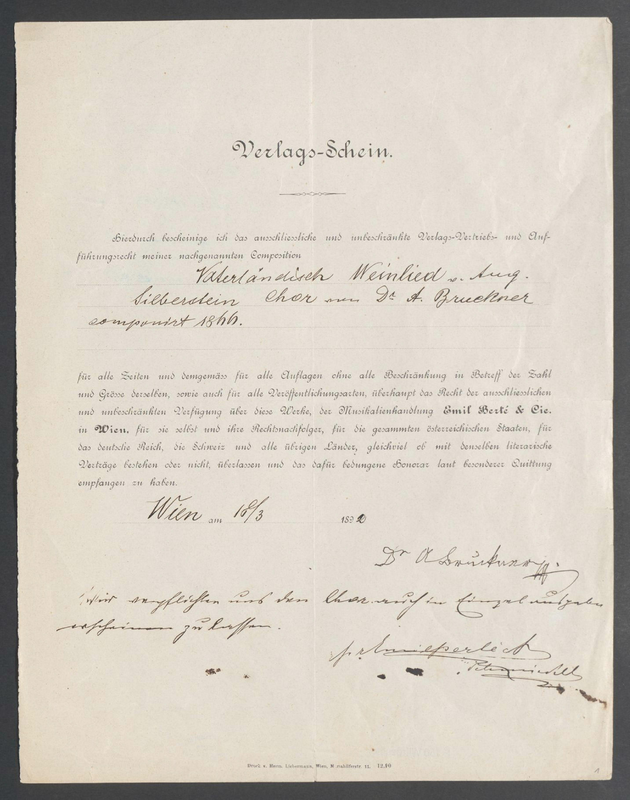 Verlags-Schein.
Hierdurch bescheinige ich das ausschliessliche und unbeschränkte Verlags-Vertriebs- und Auf-
führungsrecht meiner nachgenannten Composition
Vaterländisch Weinlied v. Aug.
Silberstein Chor von Dr A. Bruckner
componirt 1866.
für alle Zeiten und demgemäss für alle Auflagen ohne alle Beschränkung in Betreff der Zahl
und Grösse derselben, sowie auch für alle Veröffentlichungsarten, überhaupt das Recht der ausschliesslichen
und unbeschränkten Verfügung über diese Werke, der Musikalienhandlung Emil Berté & Cie.
in Wien, für sie selbst und ihre Rechtsnachfolger, für die gesammten österreichischen Staaten, für
das deutsche Reich, die Schweiz und alle übrigen Länder, gleichviel ob mit denselben literarische
Verträge bestehen oder nicht, überlassen und das dafür bedungene Honorar laut besonderer Quittung
empfangen zu haben.
Wien am 16/3 1892
Dr A Bruckner
Wir verpflichten uns den Chor auch in Einzelausgaben
erscheinen zu lassen.
Druck v. Wien, 12,90